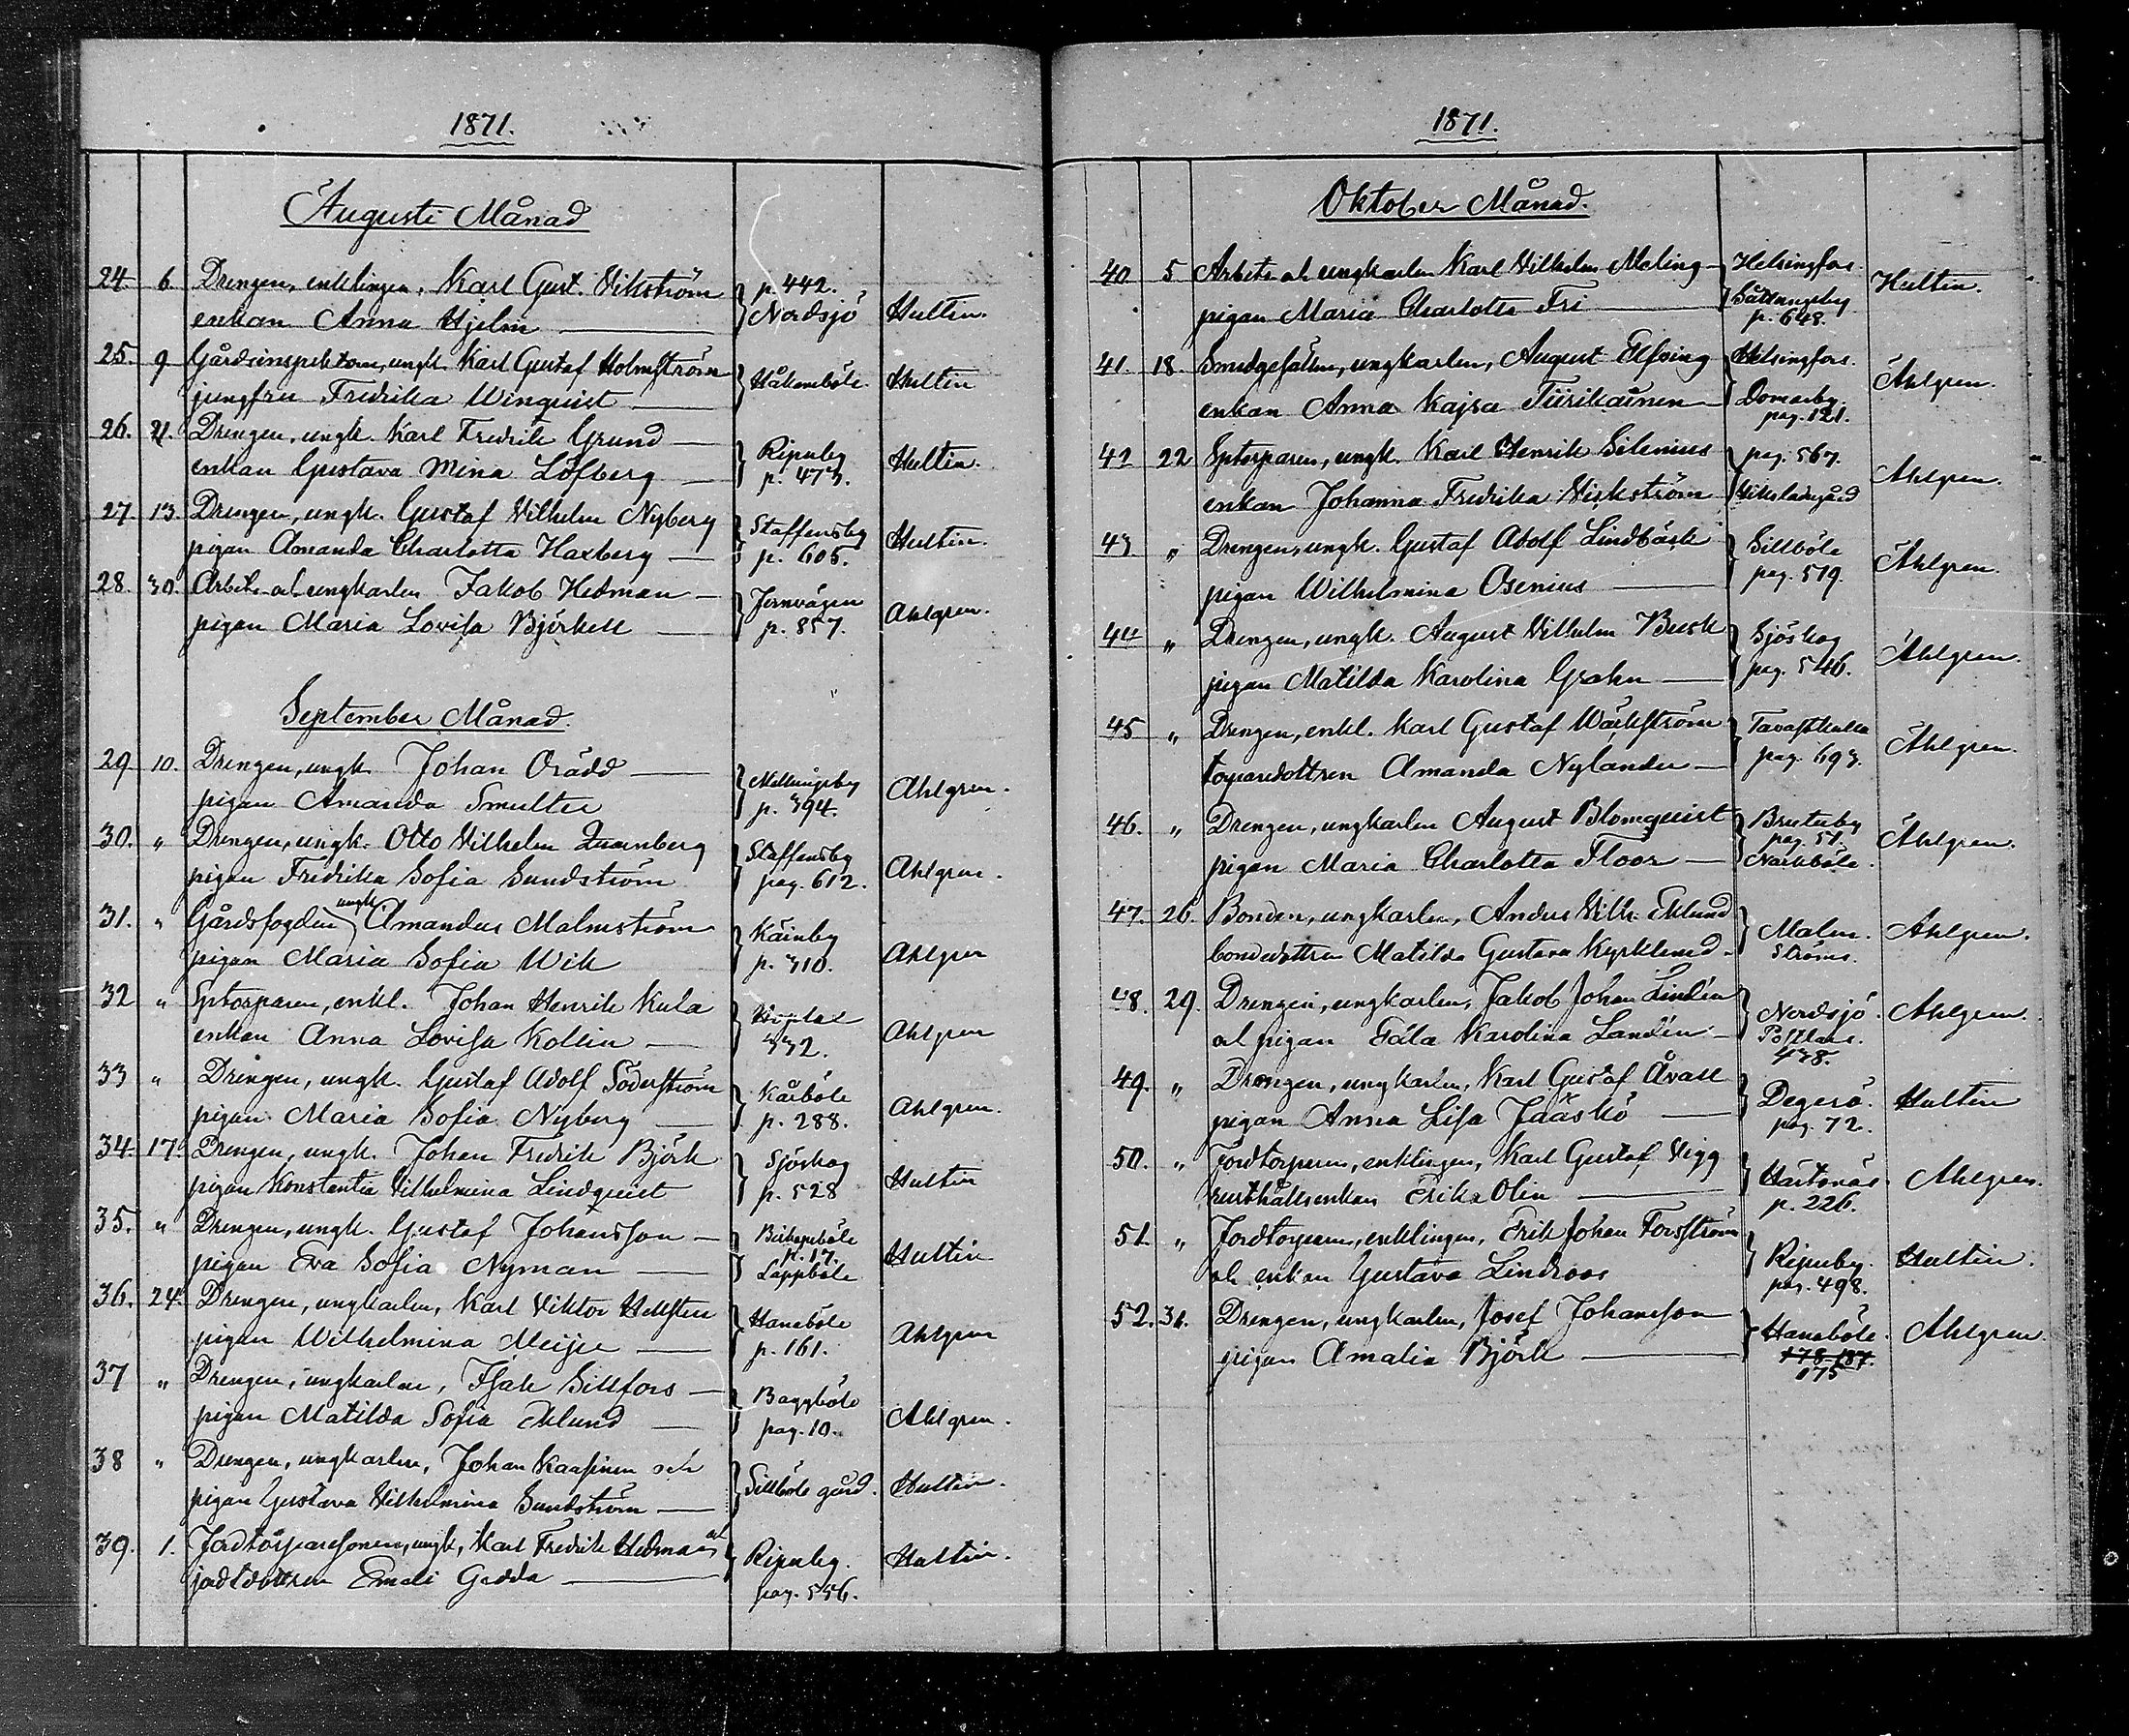 1871.
Augusti Månad
24. 6. Drengen, enklingen, Karl Gust. Vikström } p. 442.
enkan Anna Hjelm — Nordsjö Hultin.
25. 9 Gårdsinspektoren, ungk. Karl Gustaf Holmström } Håkansböle Hultin
jungfru Fredrika Winquist —
26. 21. Drengen, ungk. Karl Fredrik Grund — } Ripuby Hultin.
enkan Gustava Mina Löfberg — p. 473.
27 13 Drengen, ungk. Gustaf Vilhelm Nyberg } Staffansby Hultin.
pigan Amanda Charlotta Haxberg — p. 605.
28. 30. Arbets och ungkarlen Jakob Hedman — } Jernvägen Ahlgren.
pigan Maria Lovisa Björkell — p. 857.
September Månad.
29 10. Drengen, ungk. Johan Orädd — } Mellungsby Ahlgren.
pigan Amanda Smulter p. 394.
30. " Drengen, ungk. Otto Vilhelm Quarnberg } Staffansby
pigan Fredrika Sofia Sundström pag. 612. Ahlgren.
31. " Gårdsfogden ungk. Amandus Malmström } Käinby
pigan Maria Sofia Wik p. 310. Ahlgren
32 " Sptorparen, enkl. Johan Henrik Kula }
enkan Anna Lovisa Kollin — 332. Ahlgren
33 " Drengen, ungk. Gustaf Adolf Söderström } Kårböle
pigan Maria Sofia Nyberg — p. 288. Ahlgren.
34. 17. Drengen, ungk. Johan Fredrik Björk } Sjöskog
pigan Konstantia Vilhelmina Lindquist p. 528 Hultin
35. " Drengen, ungk. Gustaf Johansson — } Biskopsböle p. 17.
pigan Eva Sofia Nyman — } Lappböle Hultin
36. 24. Drengen, ungkarlen, Karl Viktor Hellsten } Hanaböle
pigan Wilhelmina Meijer — p. 161. Ahlgren
37 " Drengen, ungkarlen, Isak Sillfors — } Baggböle
pigan Matilda Sofia Eklund — pag. 10. Ahlgren.
38 " Drengen, ungkarlen, Johan Kaasinen och } Sillböle gård. Hultin.
pigan Gustava Vilhelmina Sundström —
39. 1. Jordtorparesonen, ungk, Karl Fredrik Hedman och } Ripuby. Hultin.
jordtdottren Emeli Gädda — pag. 556.
1871.
Oktober Månad.
40 5 Arbets och ungkarlen Karl Vilhelm Maling — } Helsingfors. Hultin.
pigan Maria Charlotta Fri — } Båtvangsby p. 648.
41. 18. Smedgesällen, ungkarlen, August Elfving } Helsingfors. Ahlgren.
enkan Anna Kajsa Tiirikainen — } Domarby. pag. 121.
42 22 Sptorparen, ungk. Karl Henrik Silenius } pag. 567. Ahlgren.
enkan Johanna Fredrika Wirkström
43 " Drengen, ungk. Gustaf Adolf Lindbäck } Sillböle Ahlgren.
pigan Wilhelmina Osenius — pag. 519.
44 " Drengen, ungk. August Vilhelm Busk } Sjöskog Ahlgren.
pigan Matilda Karolina Grahn — pag. 546.
45 " Drengen, enkl. Karl Gustaf Wäckström } Tavastkulla Ahlgren.
torparedottren Amanda Nylander — pag. 693.
46. " Drengen, ungkarlen August Blomquist } Brutuby pag. 51. Ahlgren.
pigan Maria Charlotta Floor — } Nackböle.
47. 26. Bonden, ungkarlen, Anders Vilh. Eklund } Malm. Ahlgren.
bondedottren Matilda Gustava Kyrklund — Ströms.
48. 29. Drengen, ungkarlen, Jakob Johan Lindén } Nordsjö. Ahlgren.
och pigan Edla Karolina Landén — 438.
49. " Drengen, ungkarlen, Karl Gustaf Åvall } Degerö. Hultin
pigan Anna Lisa Jääskö — pag. 72.
50. " Jordtorparen, enklingen, Karl Gustaf Vigg } Hertonäs Ahlgren.
rusthållsenkan Erika Olin — p. 226.
51 " Jordtorparen, enklingen, Erik Johan Forsström } Ripuby. Hultin.
och enkan Gustava Lindroos pag. 498.
52. 31. Drengen, ungkarlen, Josef Johansson } Hanaböle. Ahlgren.
pigan Amalia Björk — 178 187.
175